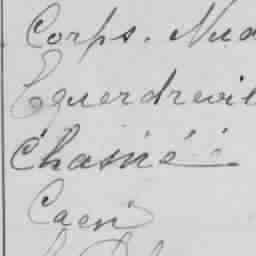 Corps. Nud
Equerdrevil
Chasné
Caen